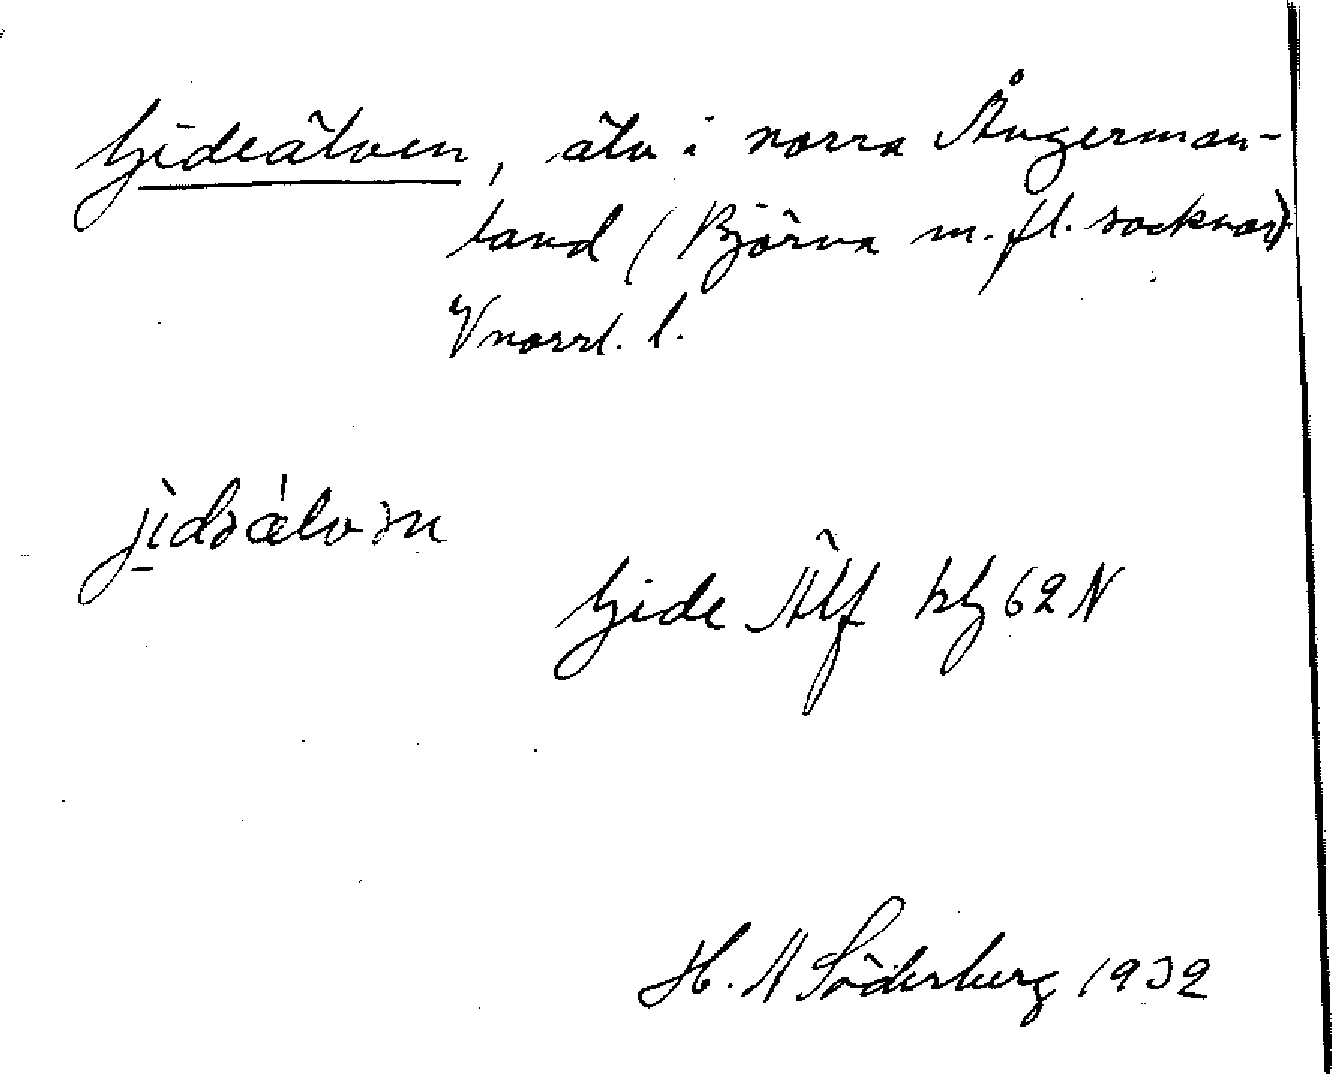 Gideälven, älv i norra Ångerman-
land (Björna m. fl. socknar)
Vnorrl. l.
jìdəälvən
Gide Älf kbl 62 N
H. A Söderberg 1932